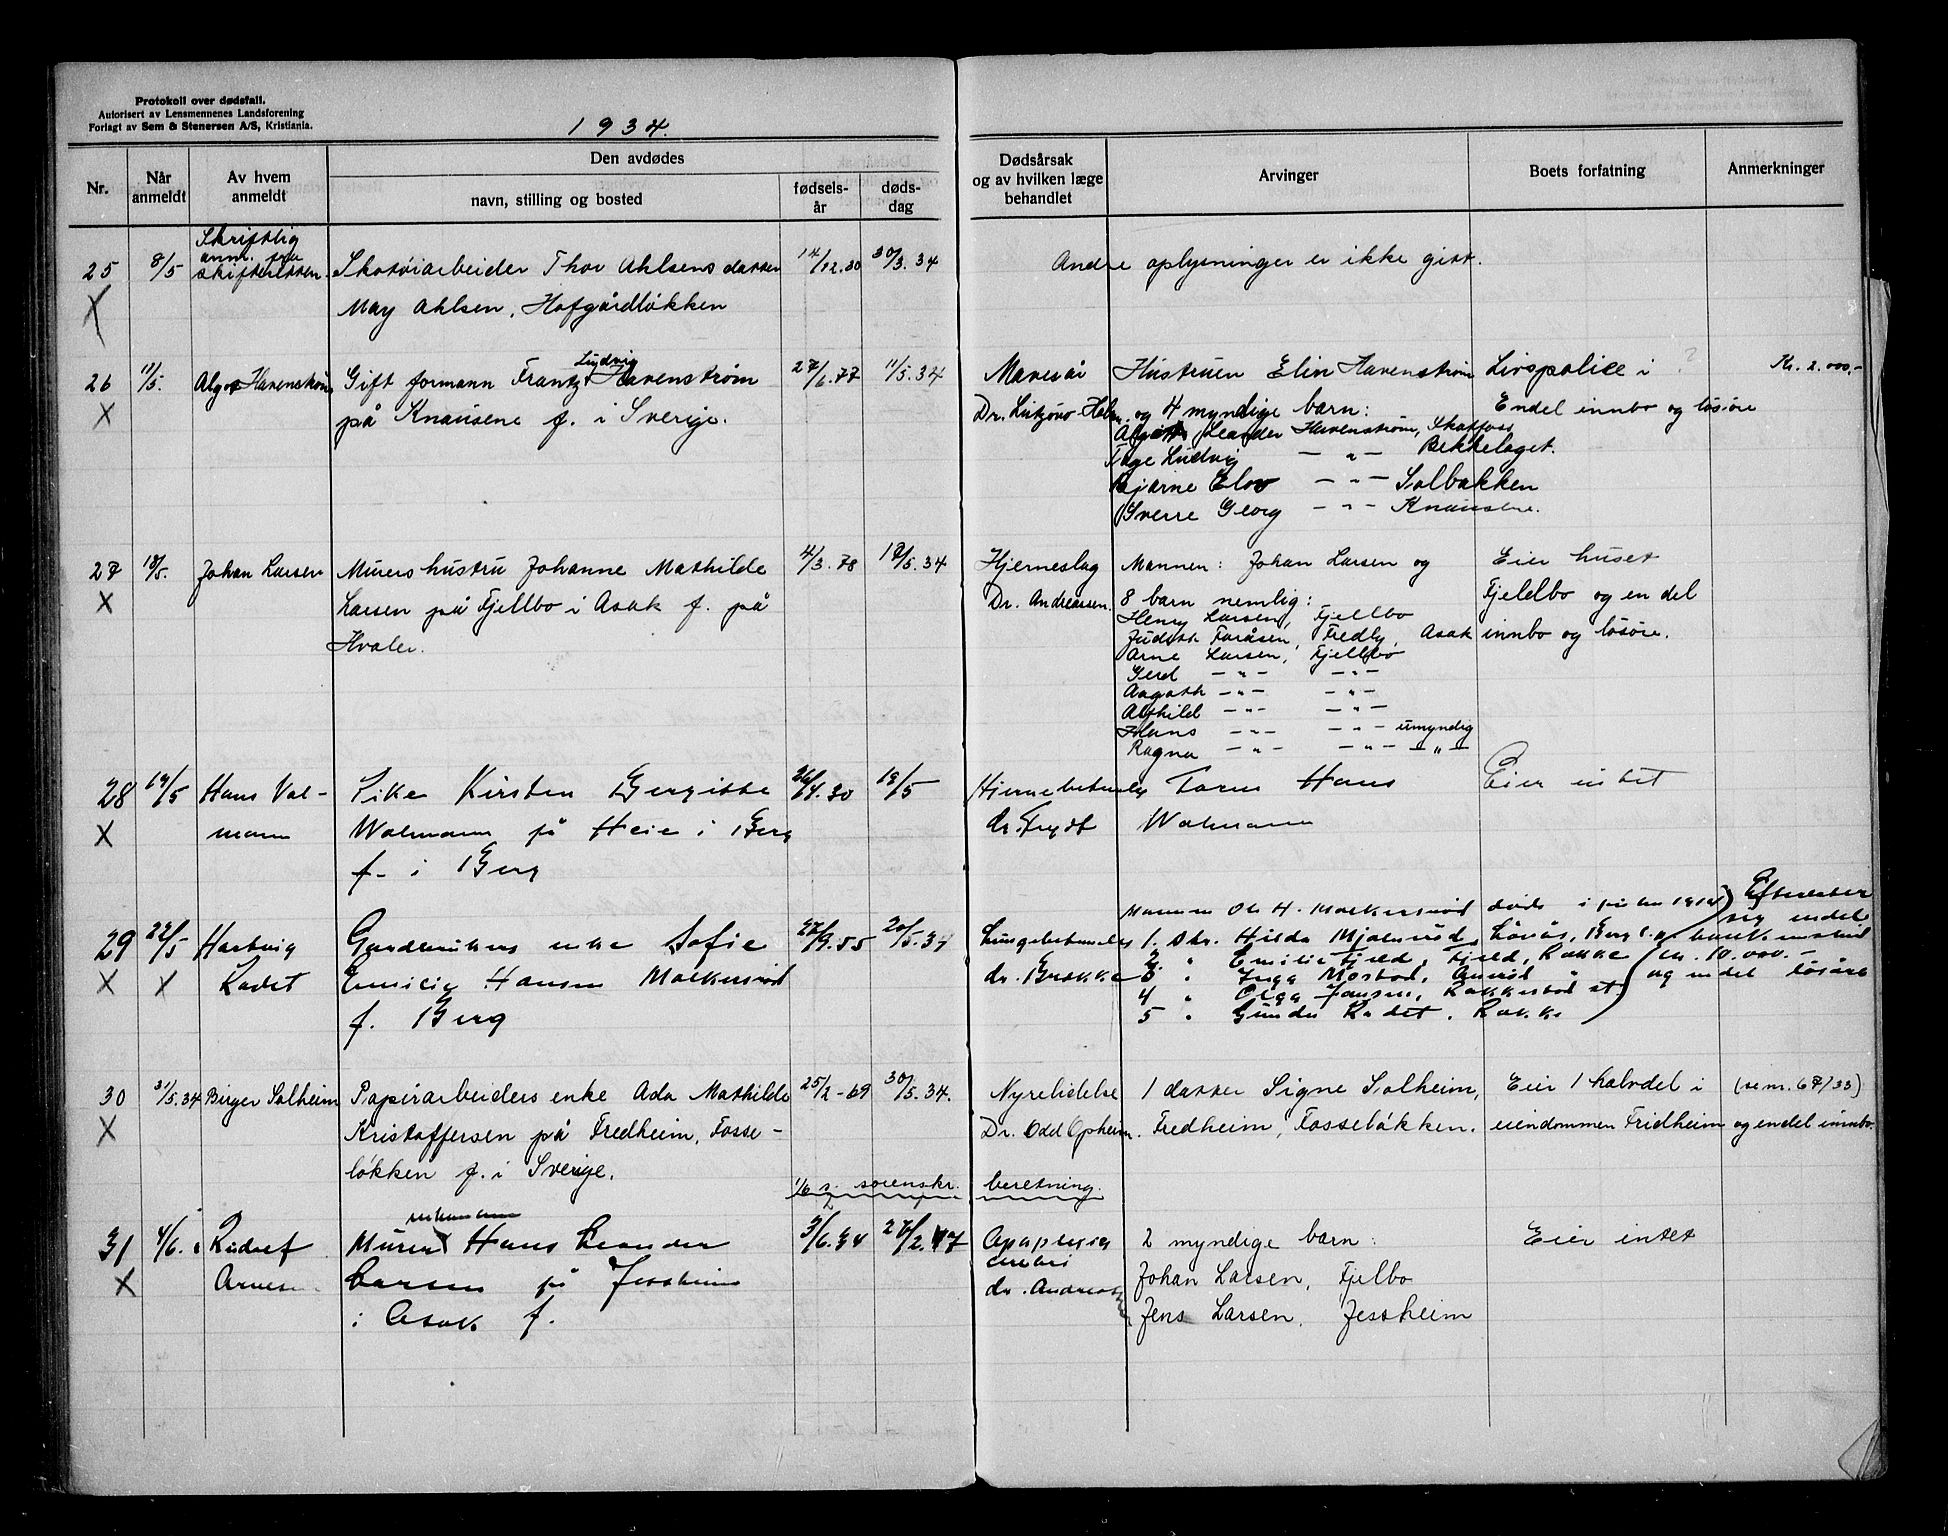 Protokoll over dødsfall.
Autorisert av Lensmennenes Landsforening
Forlagt av Sem & Stenersen A/S, Kristiania.
1934.
Nr.
Når anmeldt
Av hvem anmeldt
Den avdødes
navn, stilling og bosted
fødsels-år
døds-dag
Dødsårsak og av hvilken læge behandlet
Arvinger
Boets forfatning
Anmerkninger
25 8/5 Skriftlig anm. fra skifteretten. Skotøiarbeider Thor Ahlsens datter 14/12.30 30/3.34 Andre oplysninger er ikke gitt.
X May Ahlsen, Hofgårdløkken
26 11/5. Algot Havenstrøm Gift formann Frantz Ludvig Havenstrøm 27/6.77 11/5.34 Mavesår Hustruen Elin Havenstrøm Livspolice i ? Kr. 2.000,-
X på Knausene f. i Sverige. Dr. Lützow-Holm. og 4 myndige barn: Endel innbo og løsøre
Leander Havenstrøm, Skatfoss
Tage Ludvig — " — Bekkelaget.
Bjarne Elov — " — Solbakken
Sverre Georg — " — Knausene.
27 18/5. Johan Larsen Murers hustru Johanne Mathilde 4/3.78 18/5.34 Hjerneslag Mannen: Johan Larsen og Eier huset
X Larsen på Fjellbo i Asak f. på Dr. Andreassen. 8 barn nemlig: Fjeldbo og en del
Hvaler. Henry Larsen, Fjellbo
Judith Faråsen, Fredly, Asak innbo og løsøre.
Arne Larsen, Fjellbo
Gerd — " — — " —
Aagoth — " — — " —
Alfhild — " — — " —
Hans — " — — " — umyndig
Ragna — " — — " — — " —
28 19/5 Hans Val- Pike Kirsten Bergitte 26/4.30 19/5 Hjernebetennelse Faren Hans Eier intet
X mann Walmann på Heie i Berg dr. Frydt Walmann
f. i Berg
29 22/5 Hartvig Gardbrukers enke Sofie 27/9.55 20/5.34 Lungebetennelse
Mannen Ole H. Molkersrød døde i 1914 Efterlater
1. Dtr. Hilda Løvås, Berg sig endel bankinnskud
X X Kadet Emilie Hansen Molkersrød dr. Brække
2 " Emilie Fjeld, Fjeld, Rokke kr. 10.000.-
3 " Inga Mosbød, og endel løsøre
4 " Olga Jansen, Rokkestad st
f. Berg 5 " Gunda Kadet, Rokke
30 31/5.34 Birger Solheim Papirarbeiders enke Ada Mathilde 25/2-69 30/5.34. Nyrelidelse 1 datter Signe Solheim, Eier 1 halvdel i (se nr. 67/33)
X Kristoffersen på Fredheim, Fosse- Dr. Odd Opheim. Fredheim, Fosseløkken. eiendommen Fridheim og endel innbo.
løkken f. i Sverige.
1/6 s. sorenskr. beretning.
31 4/6. Rudolf Murer Hans Leander 3/6.54 Apoplexia 2 myndige barn: Eier intet
X Arvesen Larsen på Jessheim cerebri Johan Larsen, Fjelbo
i Asak f. dr. Andreassen Jens Larsen, Jessheim